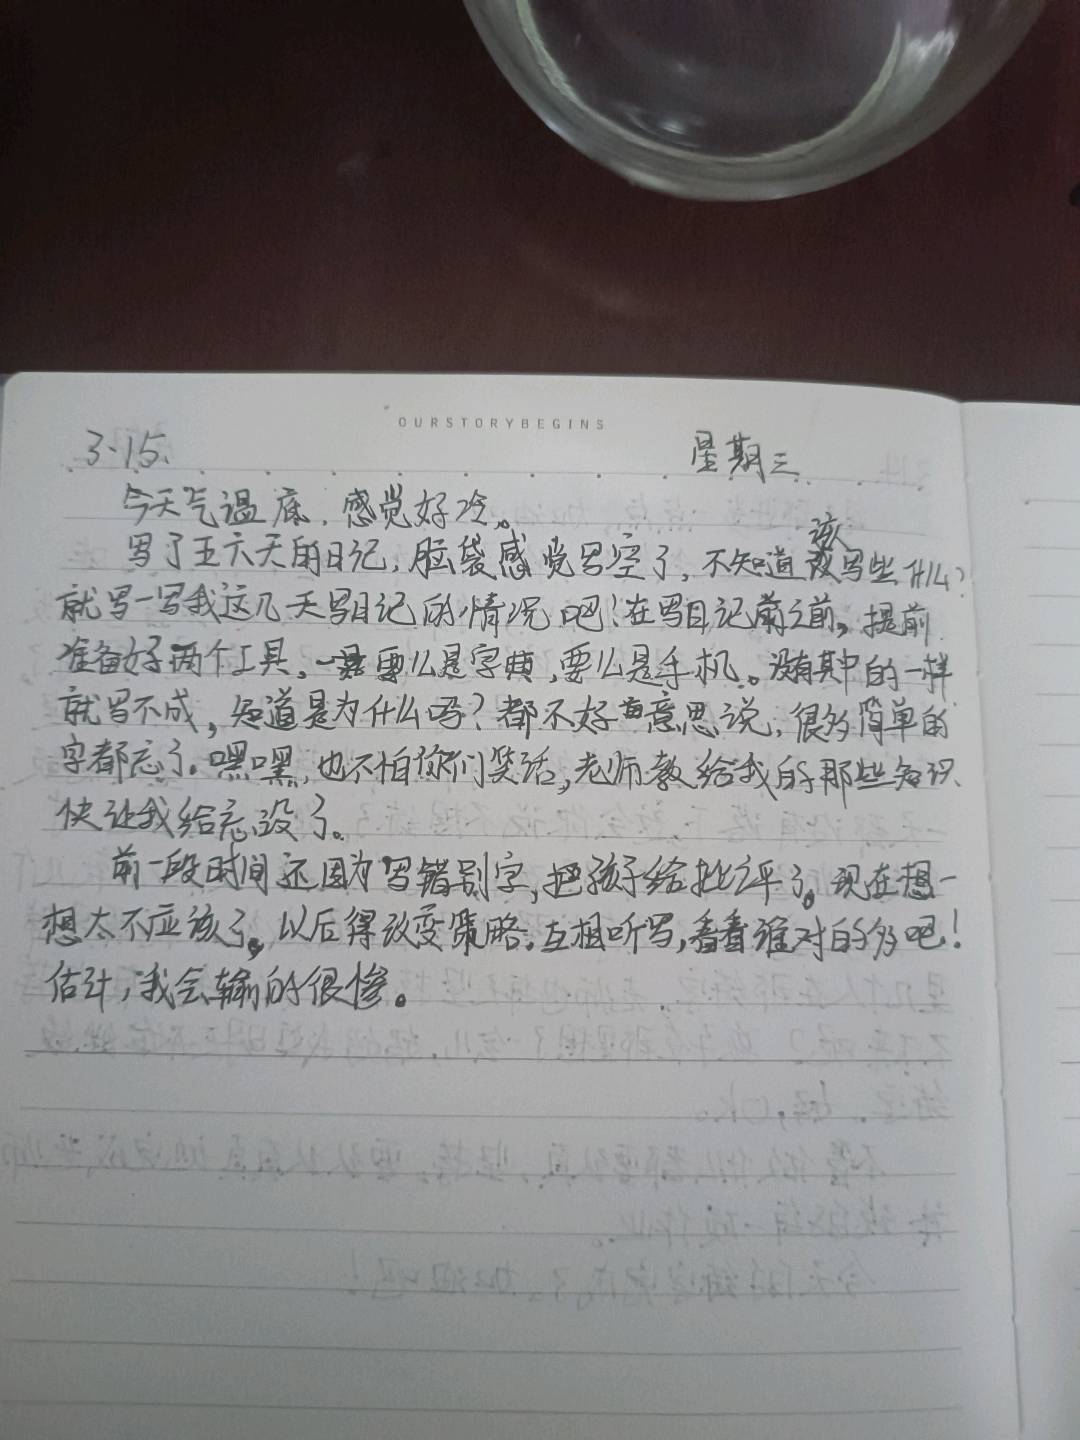 OURSTORYBEGINS
3·15. 星期三
今天气温底，感觉好冷。
写了五六天的日记，脑袋感觉写空了，不知道该写些什么？
就写一写我这几天写日记的情况吧！在写日记之前，提前
准备好两个工具。要么是字典，要么是手机。没有其中的一样
就写不成，知道是为什么吗？都不好意思说，很多简单的
字都忘了。嘿嘿，也不怕你们笑话，老师教给我的那些知识
快让我给忘没了。
前一段时间还因为写错别字，把孩子给批评了。现在想一
想太不应该了。以后得改变策略。互相听写，看看谁对的多吧！
估计，我会输的很惨。